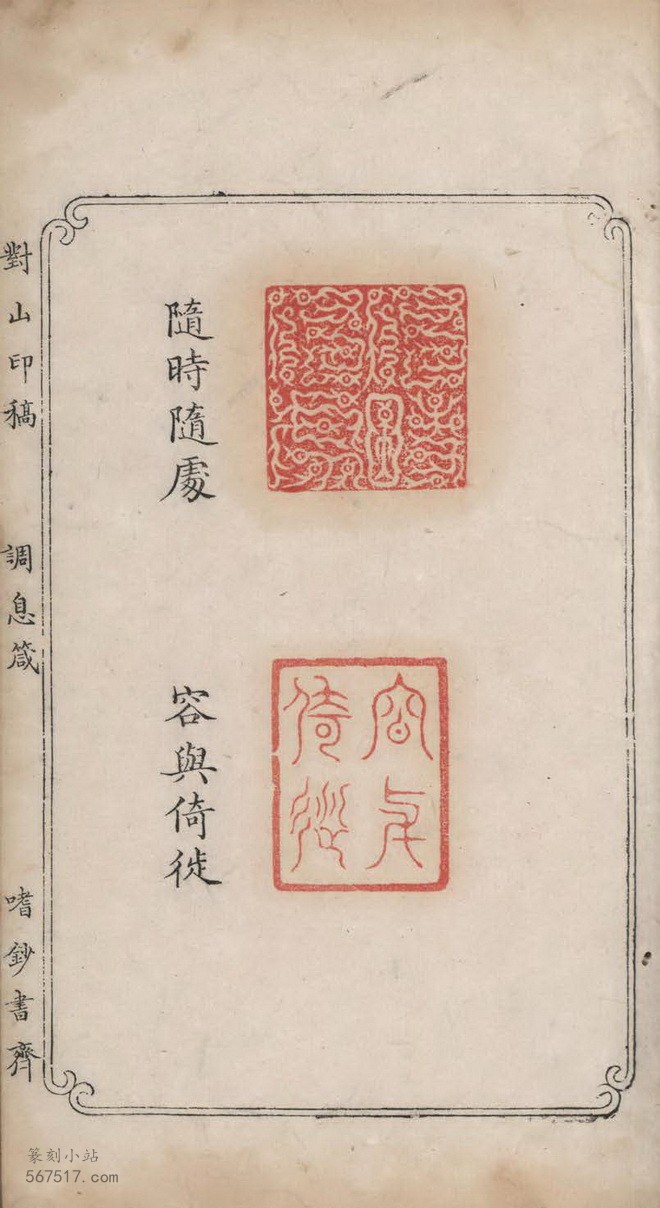 隨時隨處
容與倚徙
容与
倚徙
對山印稿
調息箴
嗜鈔書齊
篆刻小站
567517.com